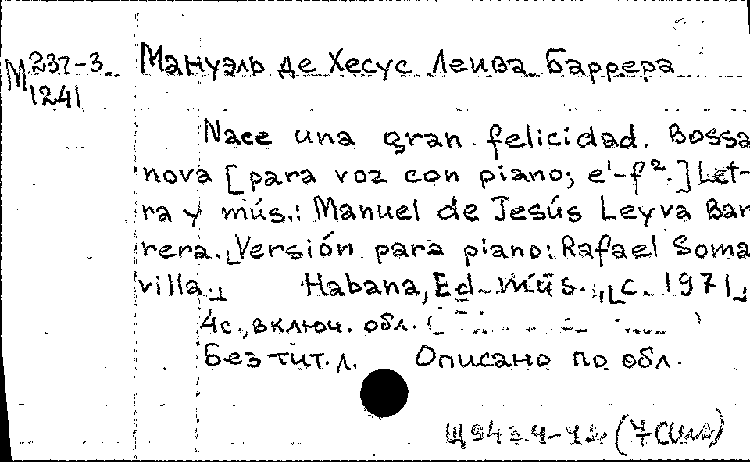 М 237-3
1241
Мануэль де Хесус Леива Баррера
Nace una gran felicidad. Bossa
nova [para voz con piano; e¹-f².] Let-
ra y mús.: Manuel de Jesús Leyva Bar
rera. [Versión para piano: Rafael Soma
villa.] Habana, Ed. mús., [c. 1971]
4с., включ. обл. (
Без тит. л. Описано по обл.